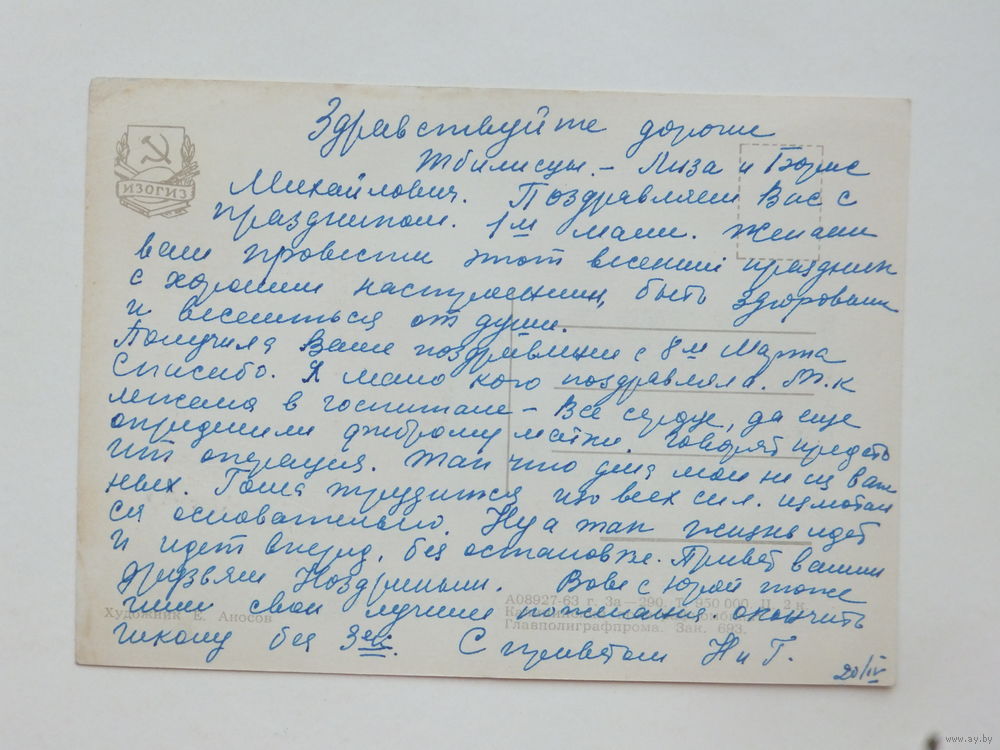 Здравствуйте дорогие
Тбилисцы. - Лиза и Борис
Михайлович. Поздравляем Вас с
праздником. 1м маи. Желаем
вам провести этот весенний праздник
с хорошим настроением, быть здоровыми
и веселиться от души.
Получила Ваше поздравление с 8м Марта
Спасибо. Я мало кого поздравляла. Т.к
лежала в госпитале - Все сердце, да еще
определили фиброму матки. Говорят предсто
ит операция. Так что дела мои не из важ
ных. Гоша трудится изо всех сил. измотал
ся основательно. Ну а так жизнь идет
и идет вперед, без остановки. Привет вашим
друзьям Ноздриным. Вове с Юрой тоже
шлю свои лучшие пожелания окончить
школу без 3ек. С приветом Н и Г.
20/IV
ИЗОГИЗ
Художник Е. Аносов
А08927-63 г. За—290. Т. 950 000. Ц. 2 к.
Главполиграфпрома. Зак. 693.
www.ay.by